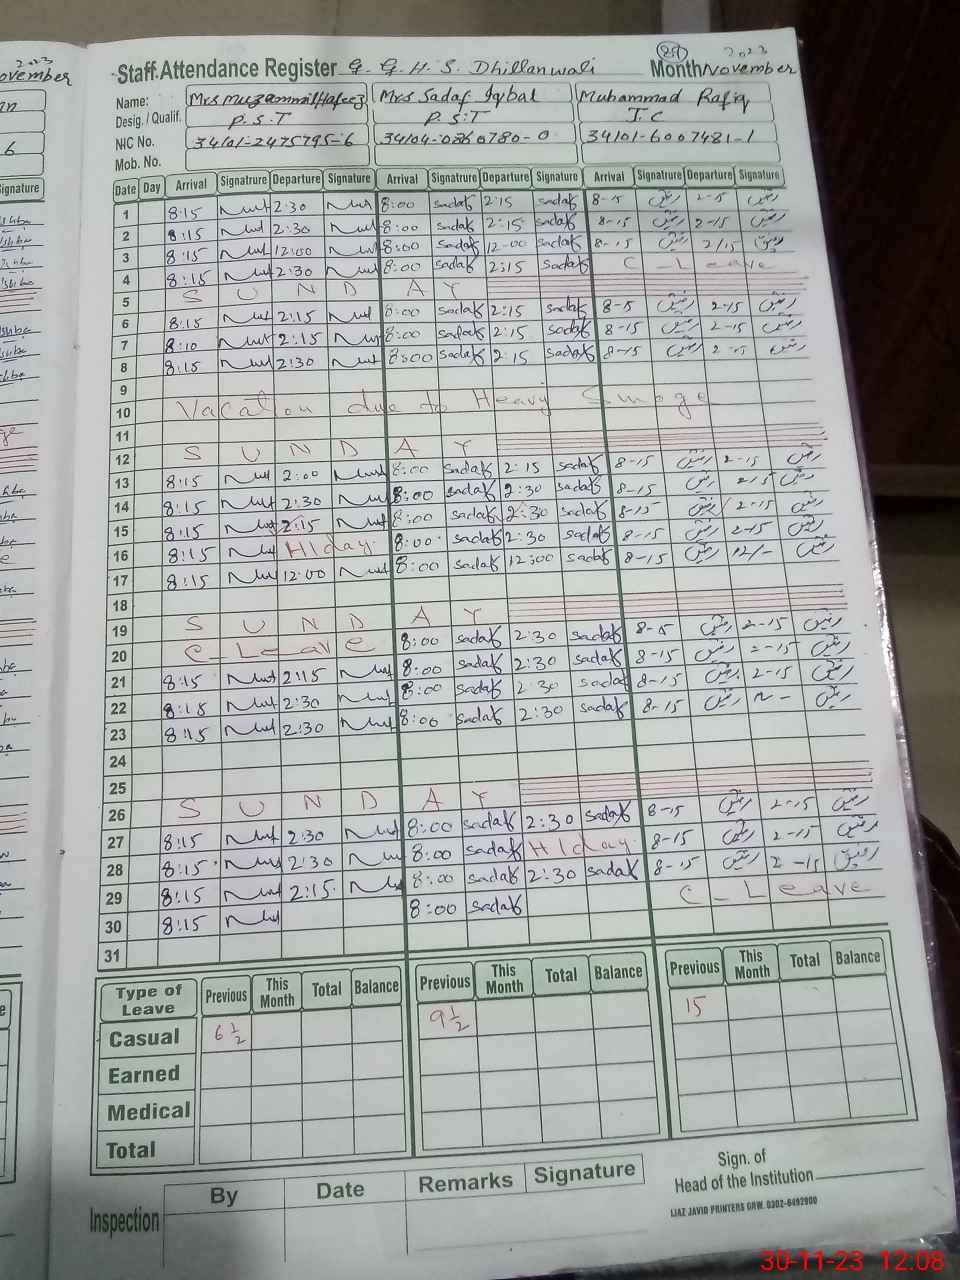 2023
November
6
Signature
251 2023
Staff Attendance Register G. G. H. S. Dhillanwali Month November
Name: Mrs Muzammil Hafeez Mrs Sadaf Iqbal Muhammad Rafiq
Desig. / Qualif. P.S.T P.S.T J.C
NIC No. 34101-2475795-6 34104-0360780-0 34101-6007481-1
Mob. No.
Date Day Arrival Signatrure Departure Signature Arrival Signatrure Departure Signature Arrival Signatrure Departure Signature
1 8:15 2:30 8:00 sadaf 2:15 sadaf 8-5 رفیق 2-5 رفیق
2 8:15 2:30 8:00 sadaf 2:15 sadaf 8-15 رفیق 2-15 رفیق
3 8:15 12:00 8:00 sadaf 12-00 sadaf 8-15 رفیق 2/15 رفیق
4 8:15 2:30 8:00 sadaf 2:15 sadaf C-Leave
5 S U N D A Y
6 8:15 2:15 8:00 sadaf 2:15 sadaf 8-5 رفیق 2-15 رفیق
7 8:10 2:15 8:00 sadaf 2:15 sadaf 8-15 رفیق 2-15 رفیق
8 8:15 2:30 8:00 sadaf 2:15 sadaf 8-15 رفیق 2-15 رفیق
9
10 Vacation due to Heavy Smoge
11
12 S U N D A Y
13 8:15 2:00 8:00 sadaf 2:15 sadaf 8-15 رفیق 2-15 رفیق
14 8:15 2:30 8:00 sadaf 2:30 sadaf 8-15 رفیق 2/5 رفیق
15 8:15 2:15 8:00 sadaf 2:30 sadaf 8-15 رفیق 2-15 رفیق
16 8:15 H/day 8:00 sadaf 2:30 sadaf 8-15 رفیق 2-15 رفیق
17 8:15 12:00 8:00 sadaf 12:00 sadaf 8-15 رفیق 12/- رفیق
18
19 S U N D A Y
20 C-Leave 8:00 sadaf 2:30 sadaf 8-5 رفیق 2-15 رفیق
21 8:15 2:15 8:00 sadaf 2:30 sadaf 8-15 رفیق 2-15 رفیق
22 8:15 2:30 8:00 sadaf 2:30 sadaf 8-15 رفیق 2-15 رفیق
23 8:15 2:30 8:00 sadaf 2:30 sadaf 8-15 رفیق رفیق
24
25
26 S U N D A Y
27 8:15 2:30 8:00 sadaf 2:30 sadaf 8-15 رفیق 2-15 رفیق
28 8:15 2:30 8:00 sadaf H/day 8-15 رفیق 2-15 رفیق
29 8:15 2:15 8:00 sadaf 2:30 sadaf 8-15 رفیق 2-15 رفیق
30 8:15 8:00 sadaf C-Leave
31
Type of Leave Previous This Month Total Balance Previous This Month Total Balance Previous This Month Total Balance
Casual 6 1/2 9 1/2 15
Earned
Medical
Total
Inspection By Date Remarks Signature
Sign. of
Head of the Institution
IJAZ JAVID PRINTERS GRW. 0302-6492900
30-11-23 12:08